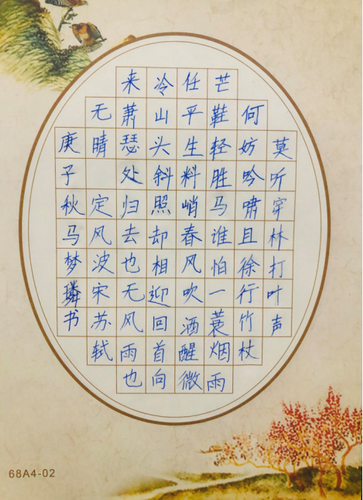 莫听穿林打叶声
何妨吟啸且徐行竹杖
芒鞋轻胜马谁怕一蓑烟雨
任平生料峭春风吹酒醒微
冷山头斜照却相迎回首向
来萧瑟处归去也无风雨也
无晴 定风波宋苏轼
庚子秋马梦璘书
68A4-02